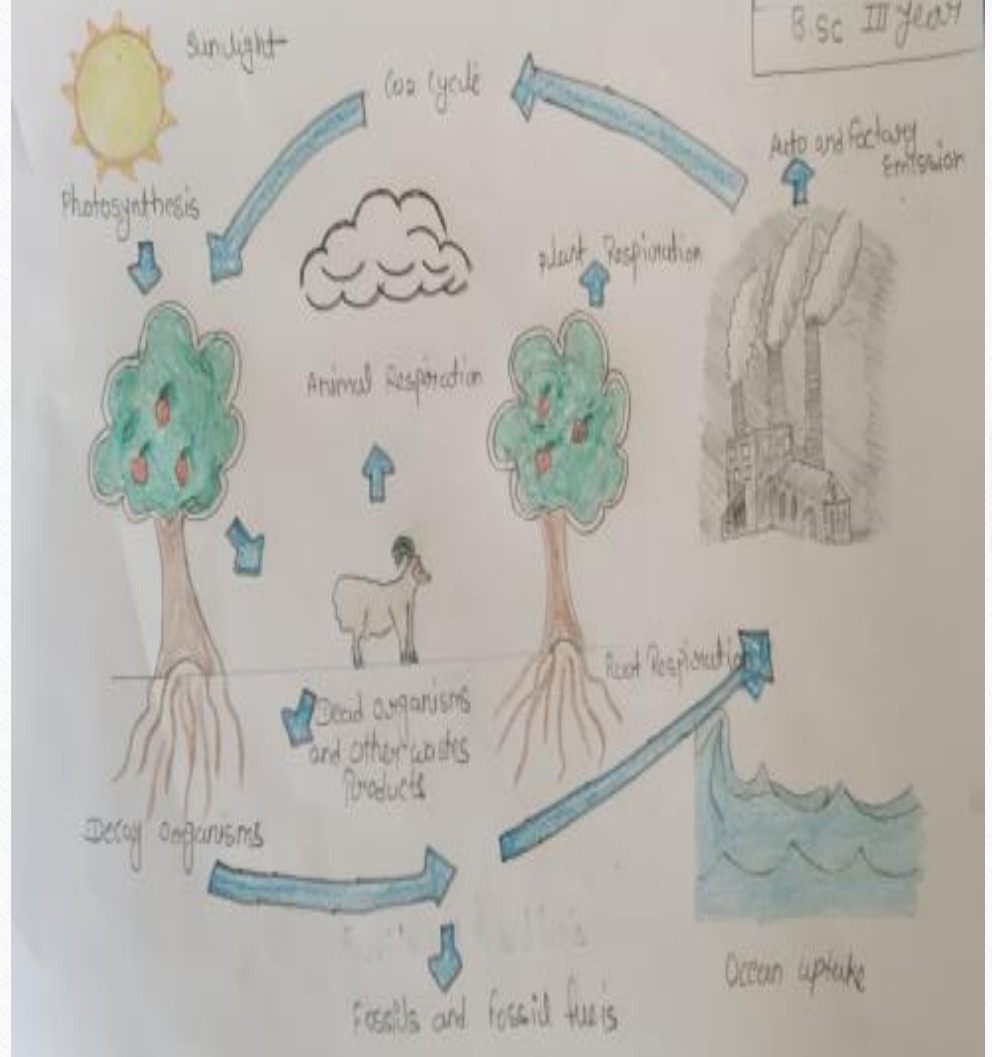 B sc III Year
Sunlight
Co2 Cycle
Auto and Factory
Emission
Photosynthesis
Plant Respiration
Animal Respiration
Root Respiration
Dead organisms
and other wastes
Products
Decay organisms
Ocean uptake
Fossils and fossil fuels